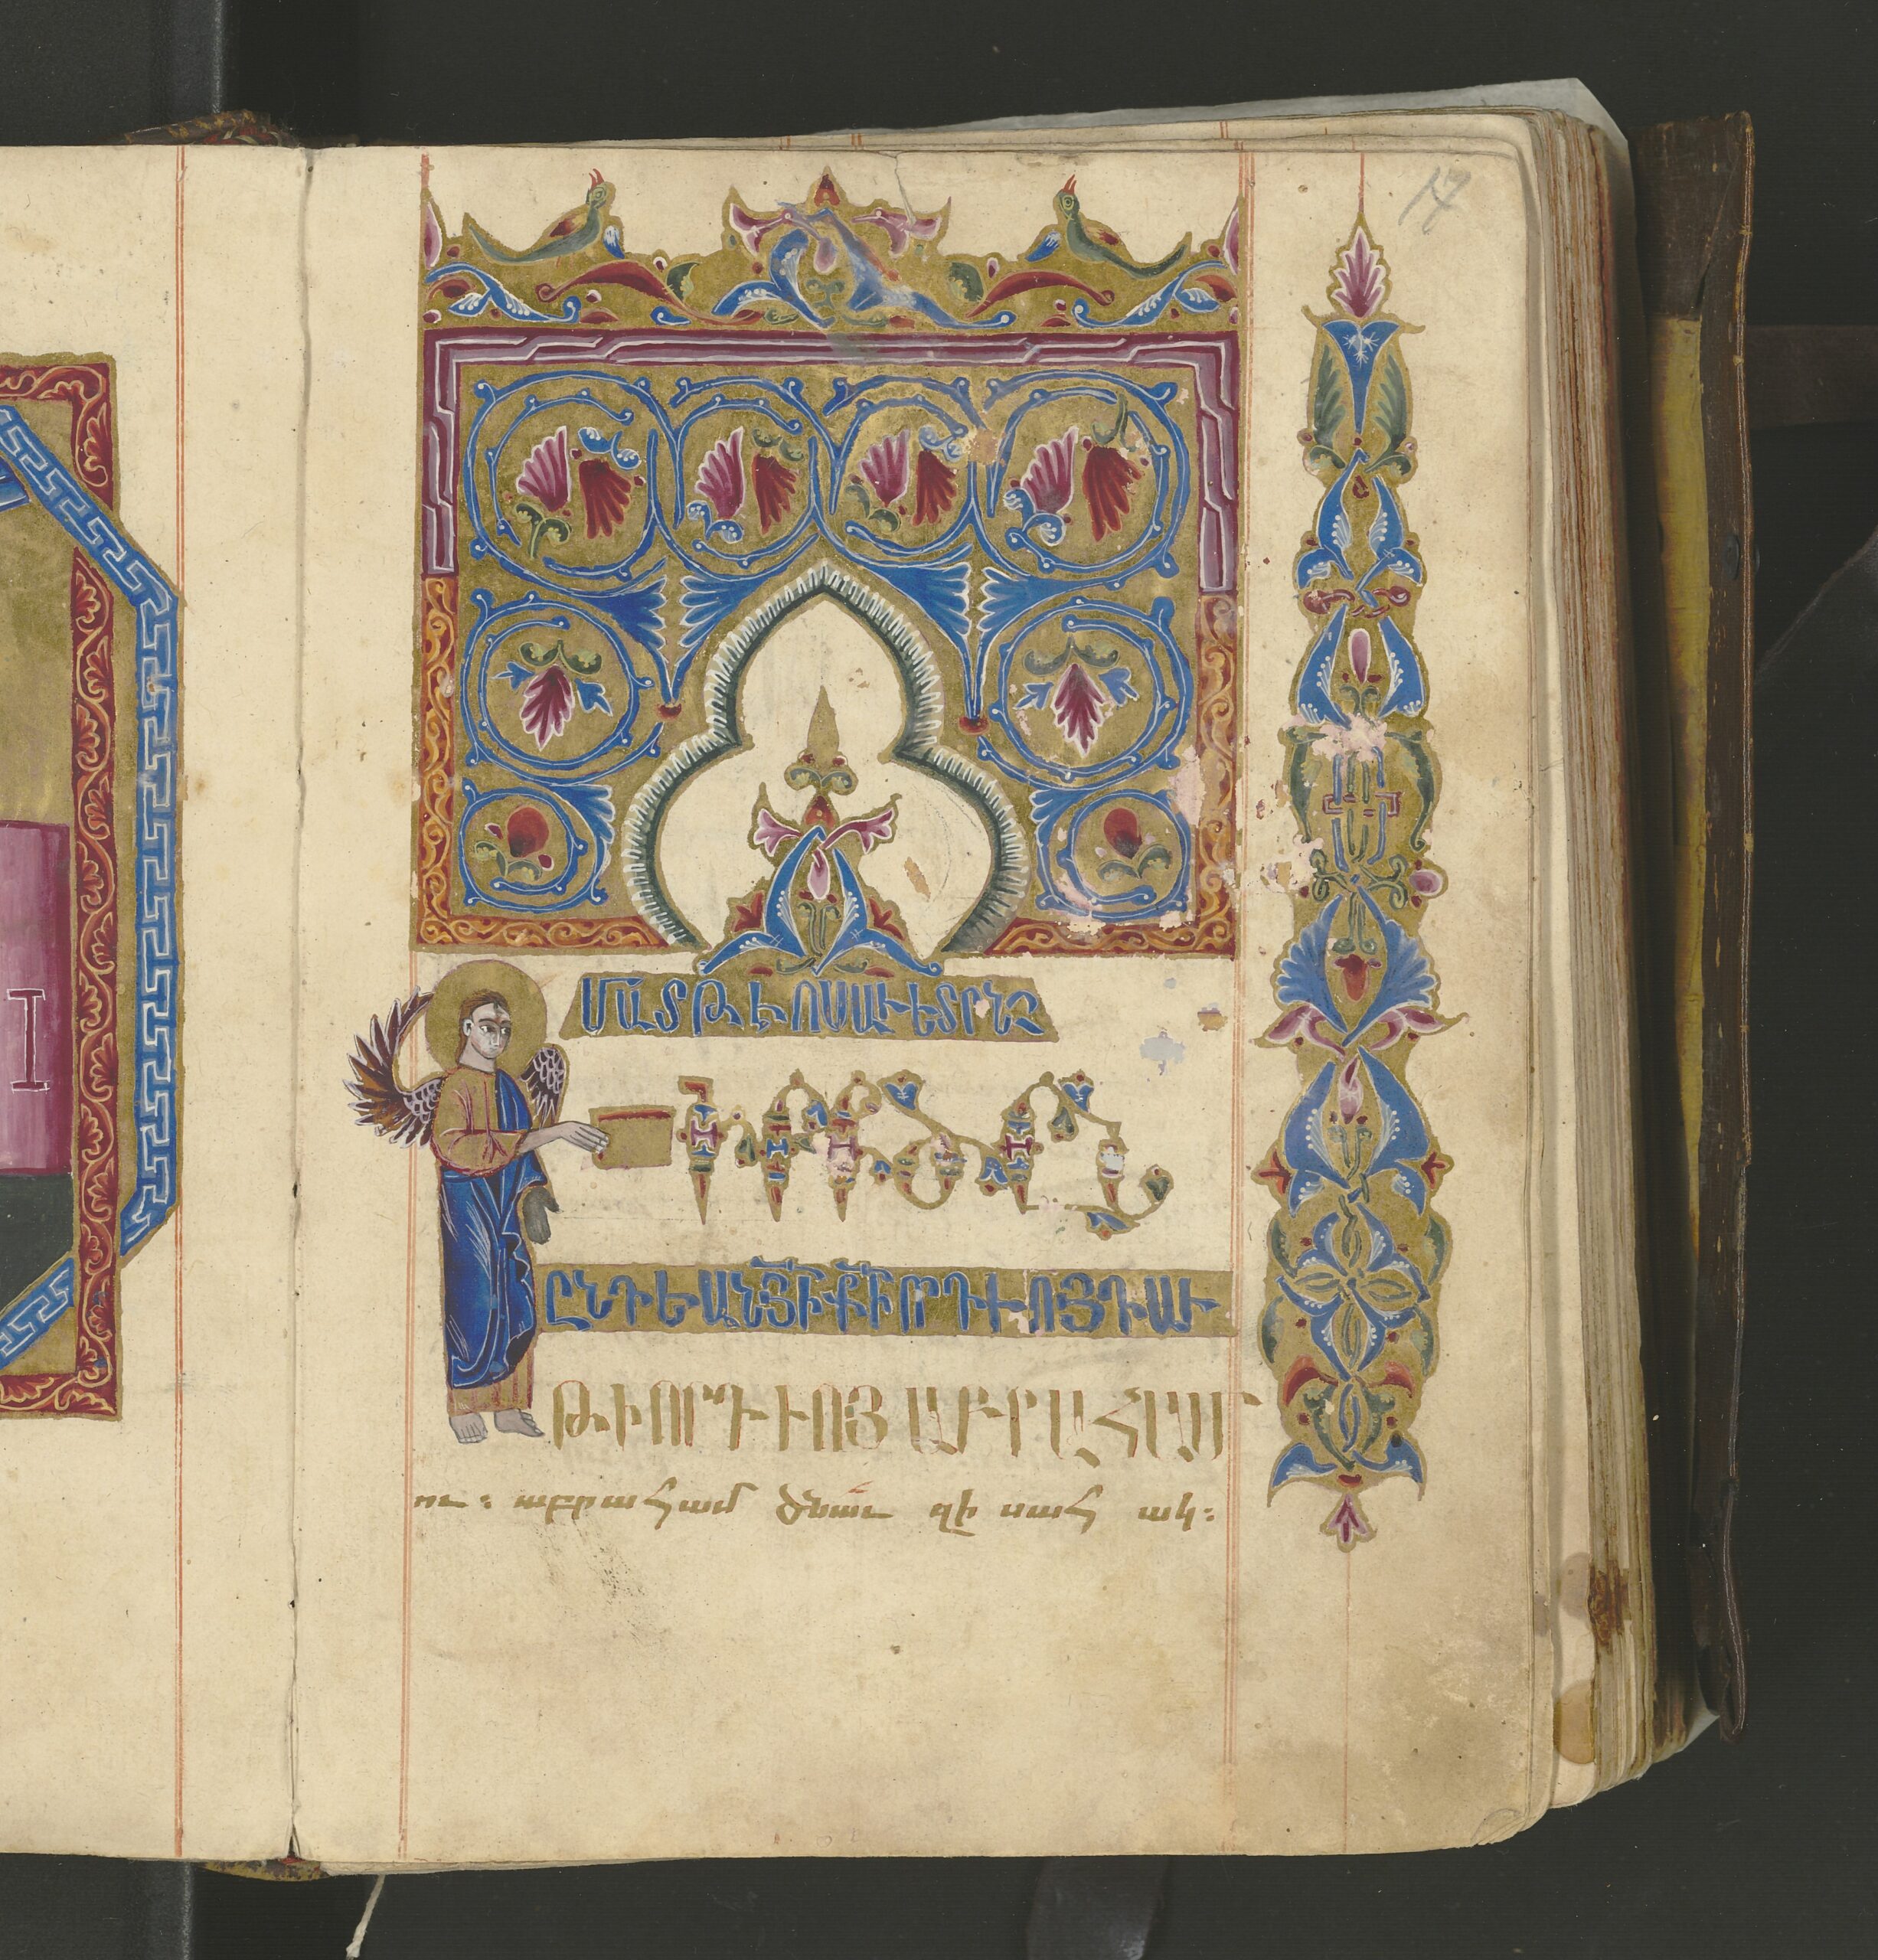 17
ՄԱՏԹԷՈՍ ԱՒԵՏՐՆՉ
ԳԻՐՔ ԾՆ
ԸՆԴԵԱՆ ՅԻ ՔԻ ՈՐԴՒՈՅ ԴԱՒ
ԹԻ ՈՐԴՒՈՅ ԱԲՐԱՀԱՄ
ու ։ աբրահամ ծնաւ զի սահ ակ։